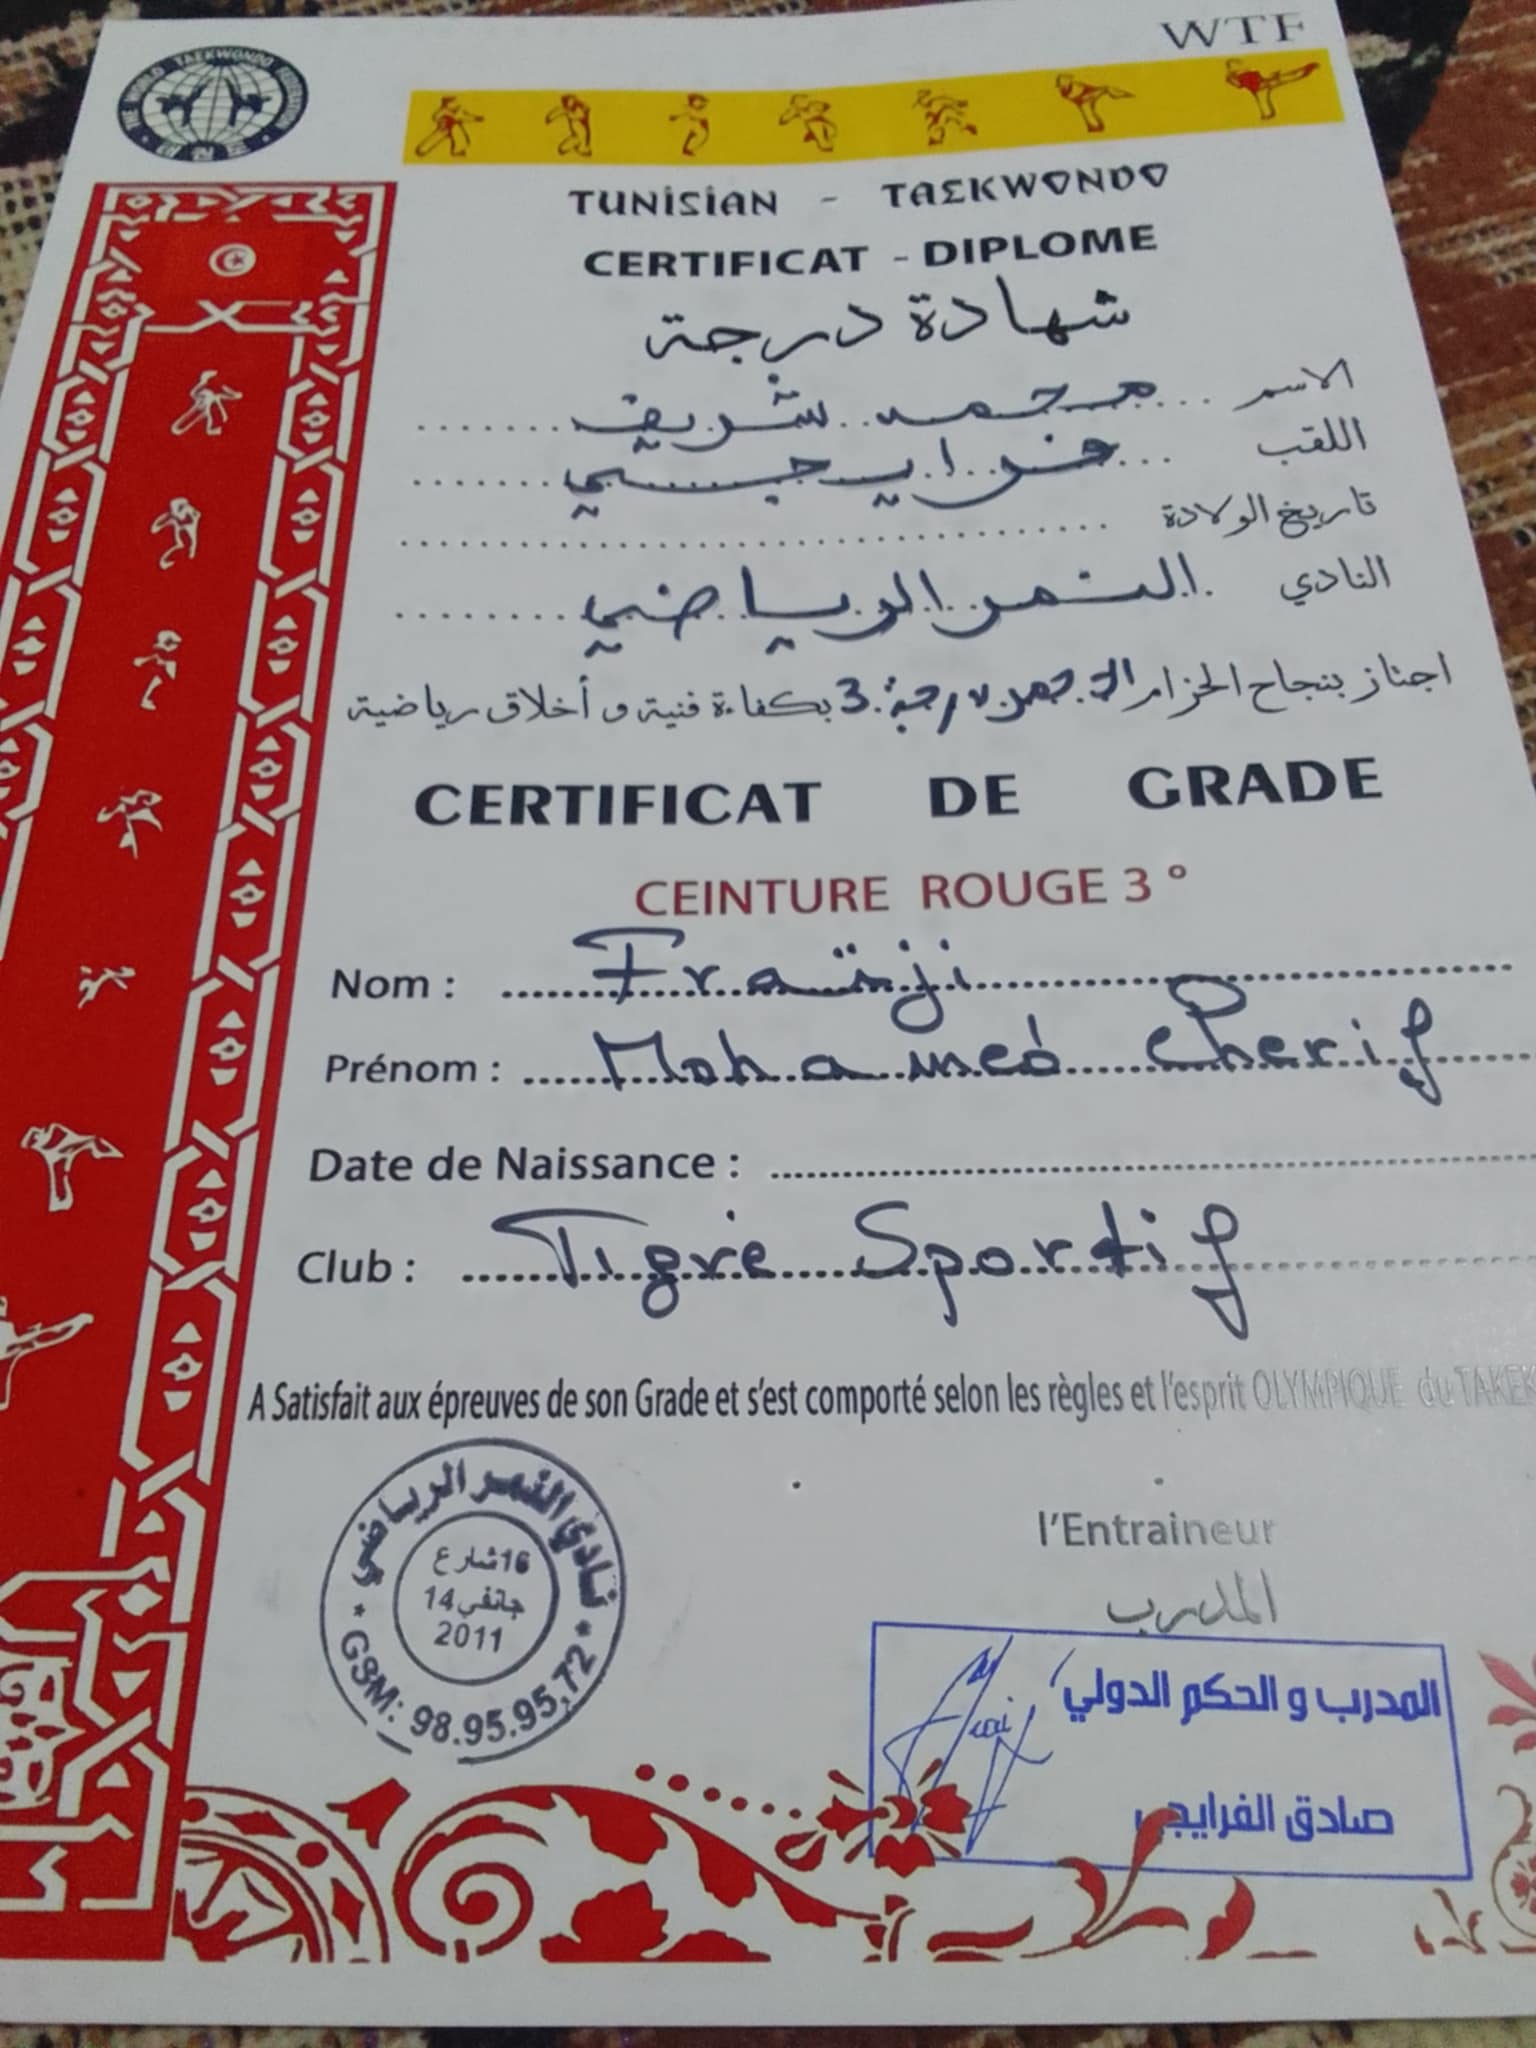 WTF
THE WORLD TAEKWONDO FEDERATION
TUNISIAN - TAEKWONDO
CERTIFICAT - DIPLOME
شهادة درجة
الاسم ... محمد شريف
اللقب ... فرايجي
تاريخ الولادة
النادي . النمر الرياضي
اجتاز بنجاح الحزام الاحمر درجة 3 بكفاءة فنية و أخلاق رياضية
CERTIFICAT DE GRADE
CEINTURE ROUGE 3 °
Nom : Fraïji
Prénom : Mohamed Cherif
Date de Naissance :
Club : Tigre Sportif
A Satisfait aux épreuves de son Grade et s'est comporté selon les règles et l'esprit OLYMPIQUE du TAKEK
نادي النمر الرياضي
16 شارع
14 جانفي
2011
GSM: 98.95.95.72
l'Entraineur
المدرب
المدرب و الحكم الدولي
صادق الفرايجي